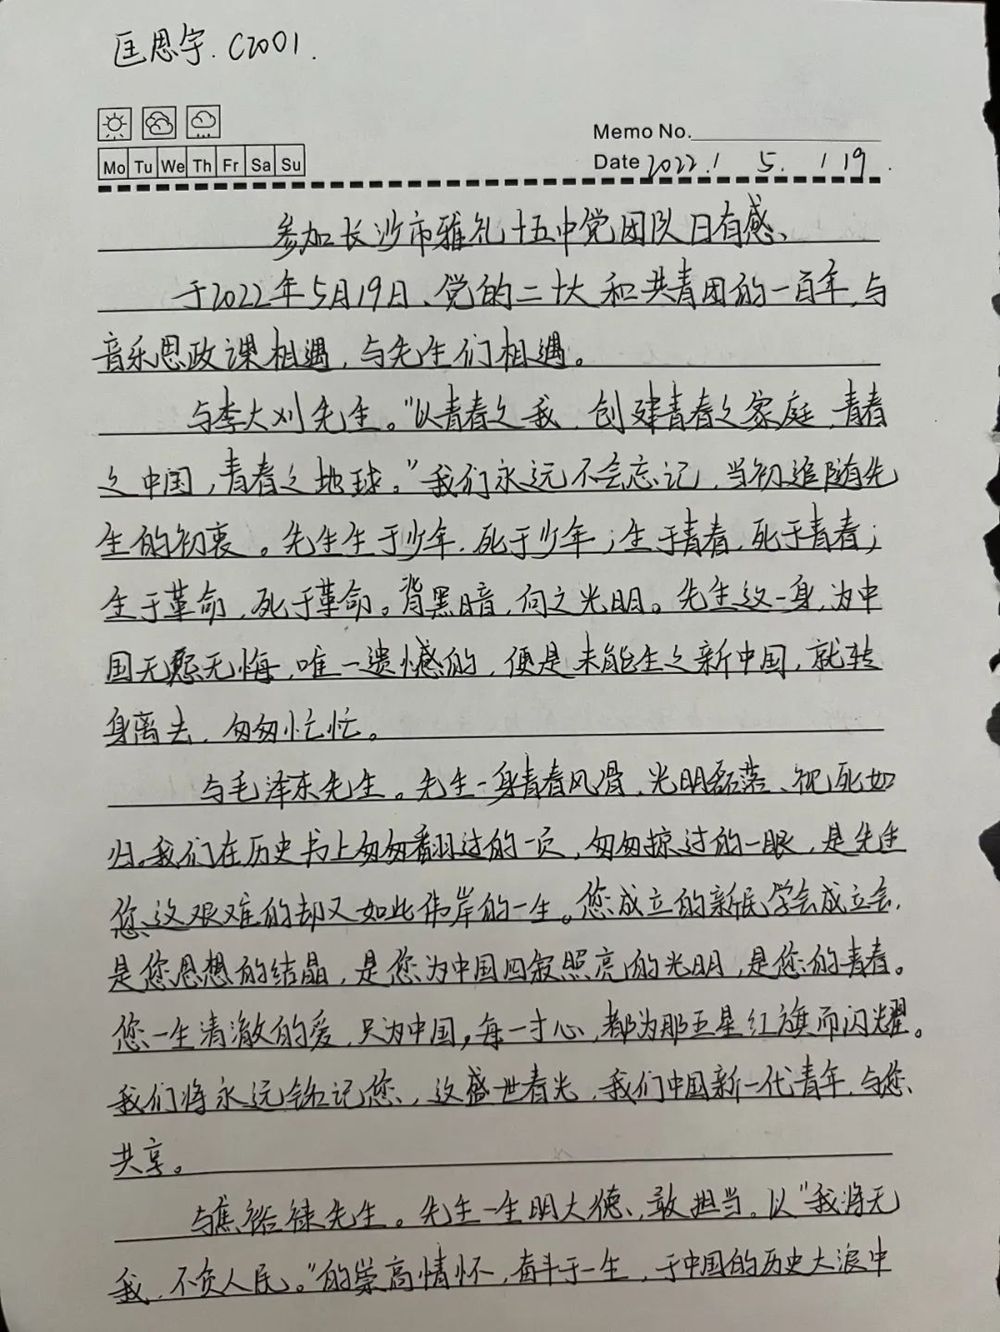 匡思宇. C2001.
Memo No.
Mo Tu We Th Fr Sa Su
Date 2022. / 5. / 19.
参加长沙市雅礼十五中党团队日有感、
于2022年5月19日、党的二十大和共青团的一百年,与
音乐思政课相遇,与先生们相遇。
与李大刈先生。“以青春之我,创建青春之家庭,青春
之中国,青春之地球。”我们永远不会忘记,当初追随先
生的初衷。先生生于少年,死于少年;生于青春,死于青春;
生于革命,死于革命。背黑暗,向之光明。先生这一身,为中
国无怨无悔,唯一遗憾的,便是未能生之新中国,就转
身离去,匆匆忙忙。
与毛泽东先生。先生一身青春风骨,光明磊落、视死如
归。我们在历史书上匆匆翻过的一页,匆匆掠过的一眼,是先生
您这艰难的却又如此伟岸的一生。您成立的新民学会成立会,
是您思想的结晶,是您为中国四寂照亮的光明,是您的青春。
您一生清澈的爱,只为中国,每一寸心,都为那五星红旗而闪耀。
我们将永远铭记您,这盛世春光,我们中国新一代青年,与您、
共享。
与焦裕禄先生。先生一生明大德、敢担当。以“我将无
我,不负人民。”的崇高情怀,奋斗于一生,于中国的历史大浪中